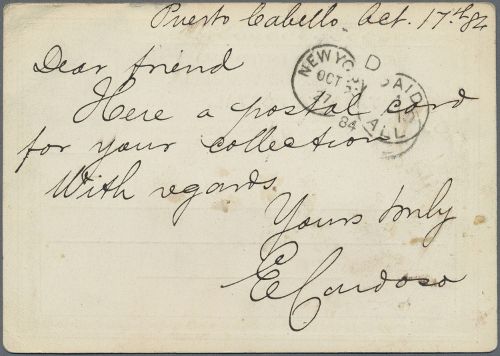 Puerto Cabello, Oct. 17th 84
Dear friend
Here a postal card
for your collection
With regards
Yours truly
E Cardoso
NEW YORK
OCT
27
84
D
PAID
ALL